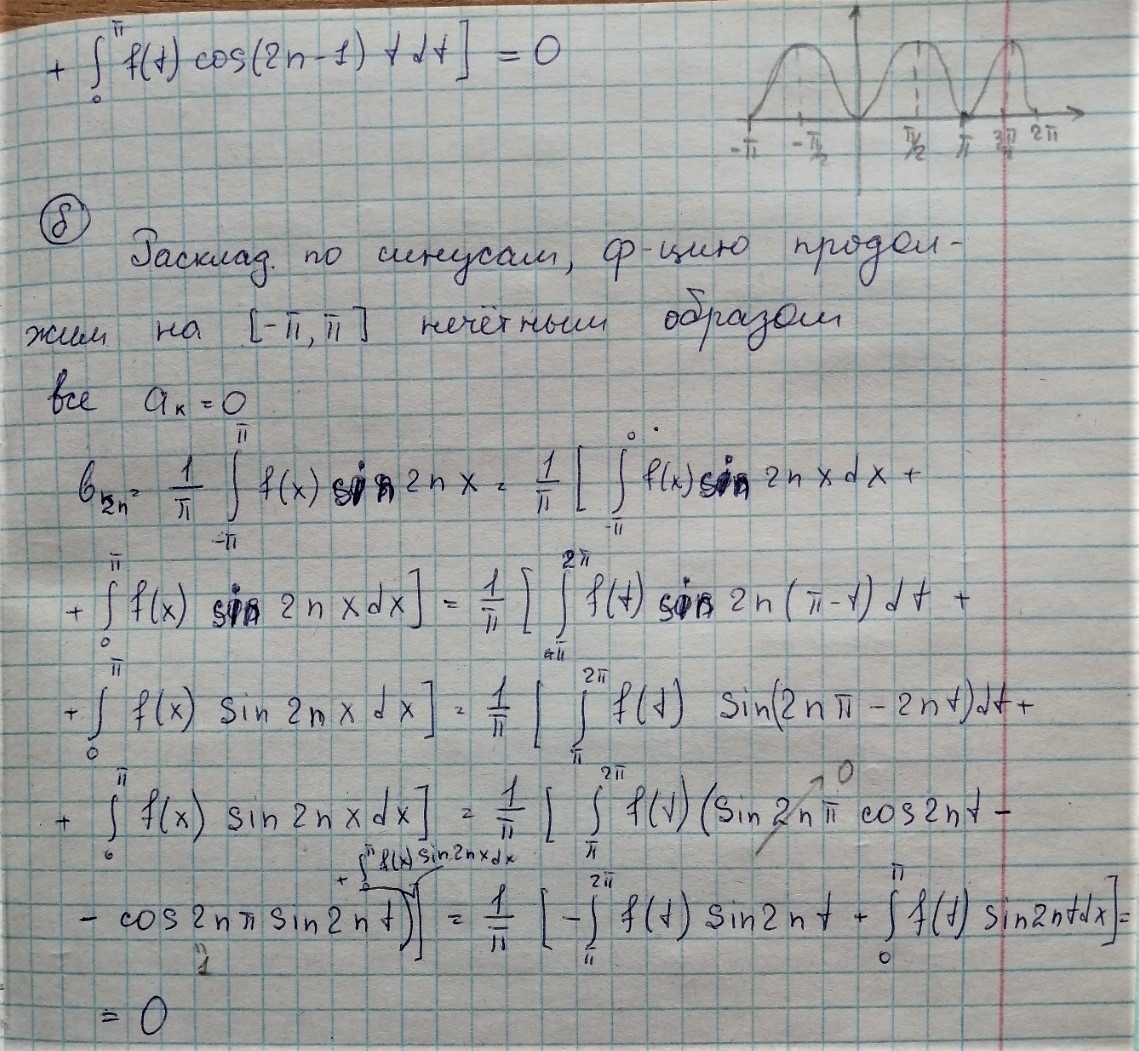 + ∫₀^π f(t) cos(2n-1) t dt] = 0
-π -π/2 π/2 π 3π/2 2π
б
Расклад. по синусам, ф-цию продол-
жим на [-π, π] нечётным образом
все aₖ = 0
b₂ₙ = 1/π ∫_{-π}^{π} f(x) sin 2n x = 1/π [ ∫_{-π}^{0} f(x) sin 2n x dx +
+ ∫₀^π f(x) sin 2n x dx] = 1/π [ ∫_π^{2π} f(t) sin 2n (π-t) dt +
+ ∫₀^π f(x) sin 2n x dx] = 1/π [ ∫_π^{2π} f(t) sin(2nπ - 2nt)dt +
+ ∫₀^π f(x) sin 2n x dx] = 1/π [ ∫_π^{2π} f(t) (sin 2nπ cos 2nt -
0
+ ∫₀^π f(x) sin 2nx dx
- cos 2nπ sin 2nt)] = 1/π [ - ∫_π^{2π} f(t) sin 2nt + ∫₀^π f(t) sin 2nt dx] =
1
= 0